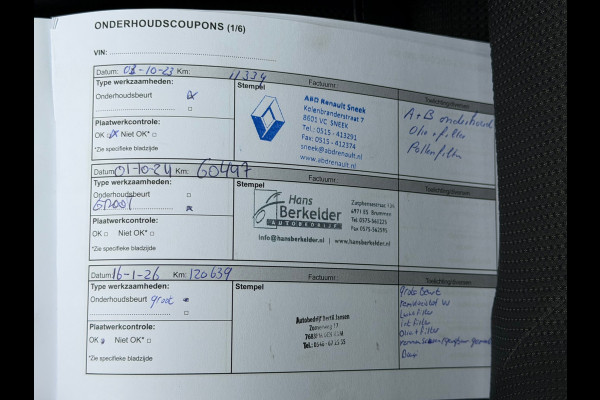 ONDERHOUDSCOUPONS (1/6)
VIN:
Datum: 03-10-23 Km: 11334 Factuurnr:
Type werkzaamheden: Stempel Toelichting/diversen
Onderhoudsbeurt
ABD Renault Sneek
Kolenbranderstraat 7
8601 VC SNEEK
Tel.: 0515 - 413291
Fax.: 0515 - 412374
sneek@abdrenault.nl
www.abdrenault.nl
RENAULT
A+B onderhoud
Olie + filter
Pollenfilter
Plaatwerkcontrole:
OK Niet OK*
*Zie specifieke bladzijde
Datum: 01-10-24 Km: 60447 Factuurnr:
Type werkzaamheden: Stempel Toelichting/diversen
Onderhoudsbeurt
GROOT
Hans
Berkelder
AUTOBEDRIJF
6971 ES Brummen
Tel 0575-561221
info@hansberkelder.nl | www.hansberkelder.nl
Plaatwerkcontrole:
OK Niet OK*
*Zie specifieke bladzijde
Datum: 16-1-26 Km: 120639 Factuurnr:
Type werkzaamheden: Stempel Toelichting/diversen
Onderhoudsbeurt groot
Autobedrijf Bertil Jansen
grote Beurt
Luchtfilter
Olie + filter
Plaatwerkcontrole:
OK Niet OK*
*Zie specifieke bladzijde